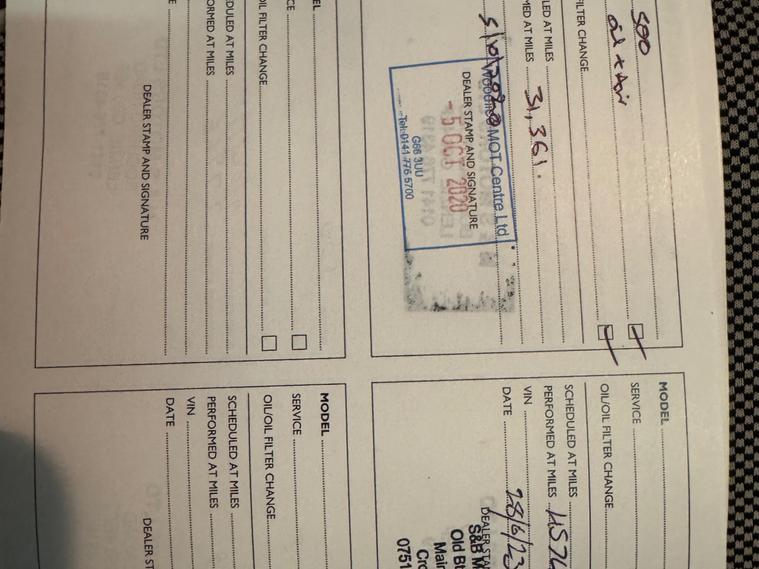 500
oil + Air
ILTER CHANGE
LED AT MILES
MED AT MILES 31,361.
5/10/2020
MOT Centre Ltd
DEALER STAMP AND SIGNATURE
-5 OCT 2020
G66 3UU
Tel: 0141 776 5700
MODEL
SERVICE
OIL/OIL FILTER CHANGE
SCHEDULED AT MILES
PERFORMED AT MILES
VIN
DATE 28/6/23
DEALER STA
S&B M
Old Bu
Main
Cro
0751
EL
CE
OIL FILTER CHANGE
EDULED AT MILES
FORMED AT MILES
E
DEALER STAMP AND SIGNATURE
MODEL
SERVICE
OIL/OIL FILTER CHANGE
SCHEDULED AT MILES
PERFORMED AT MILES
VIN
DATE
DEALER ST